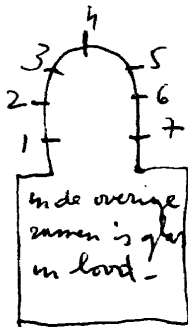 4
3 5
2 6
1 7
in de overige
ramen is glas
in lood -